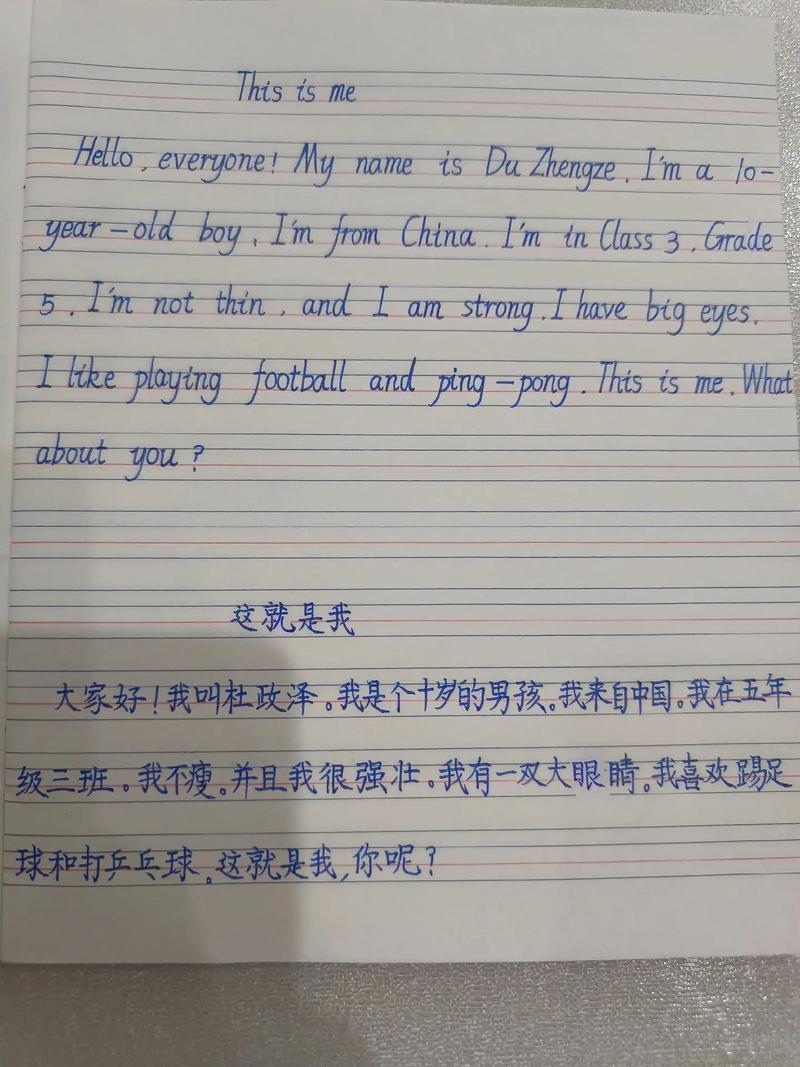 This is me
Hello, everyone! My name is Du Zhengze. I'm a 10-
year-old boy. I'm from China. I'm in Class 3, Grade
5. I'm not thin, and I am strong. I have big eyes.
I like playing football and ping-pong. This is me. What
about you?
这就是我
大家好!我叫杜政泽。我是个十岁的男孩。我来自中国。我在五年
级三班。我不瘦。并且我很强壮。我有一双大眼睛。我喜欢踢足
球和打乒乓球。这就是我,你呢?